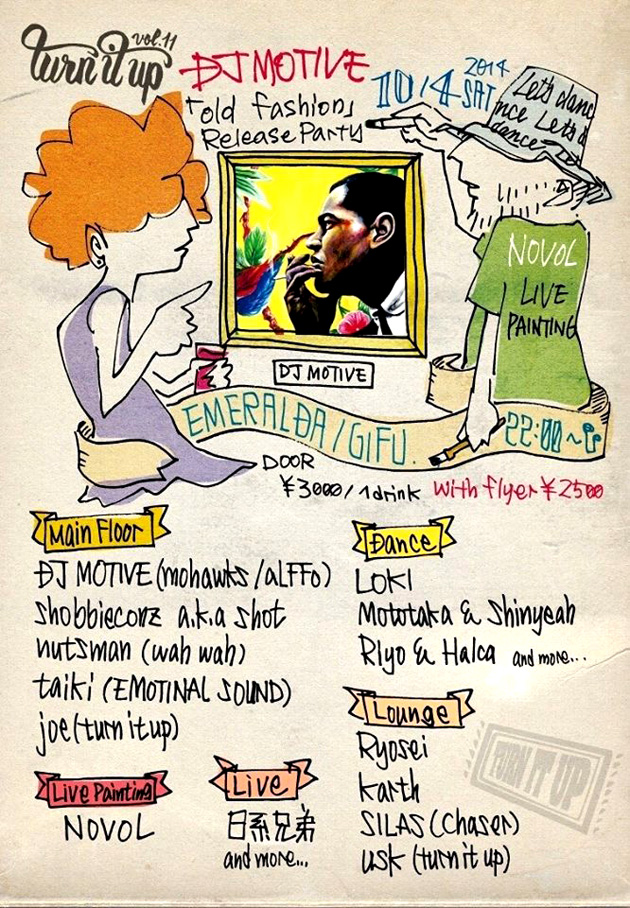 turn it up vol.11
DJ MOTIVE
10/4 2014 SAT
「old fashion」
Release Party
Let's danc
nce Let's d
dance
NOVOL
LIVE
PAINTING
DJ MOTIVE
EMERALDA/GIFU.
22:00~
DOOR
¥3000/1drink with flyer ¥2500
Main Floor
DJ MOTIVE (mohawks/aLFFo)
shobbieconz a.k.a shot
nutsman (wah wah)
taiki (EMOTINAL SOUND)
joe (turn it up)
Live Painting
NOVOL
Live
日系兄弟
and more...
Dance
LOKI
Mototaka & Shinyeah
RIyo & Halca and more...
Lounge
Ryosei
karth
SILAS (Chaser)
usk (turn it up)
TURN IT UP